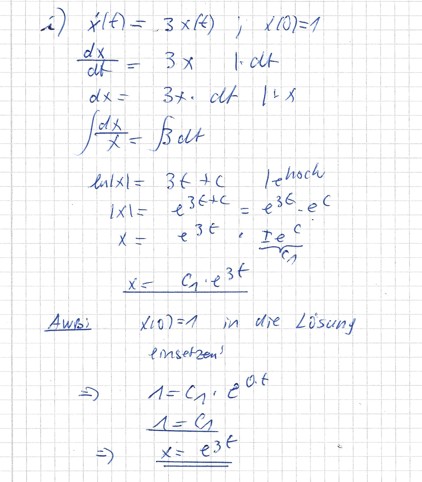 i) ẋ(t) = 3x(t) ; x(0)=1
dx/dt = 3x |·dt
dx = 3x · dt |:x
∫dx/x = ∫3dt
ln|x| = 3t+c |e hoch
|x| = e^(3t+c) = e^(3t) · e^c
x = e^(3t) · ±e^c
C₁
x = C₁ · e^(3t)
AWB: x(0)=1 in die Lösung
einsetzen!
=> 1 = C₁ · e^(0·t)
1 = C₁
=> x = e^(3t)